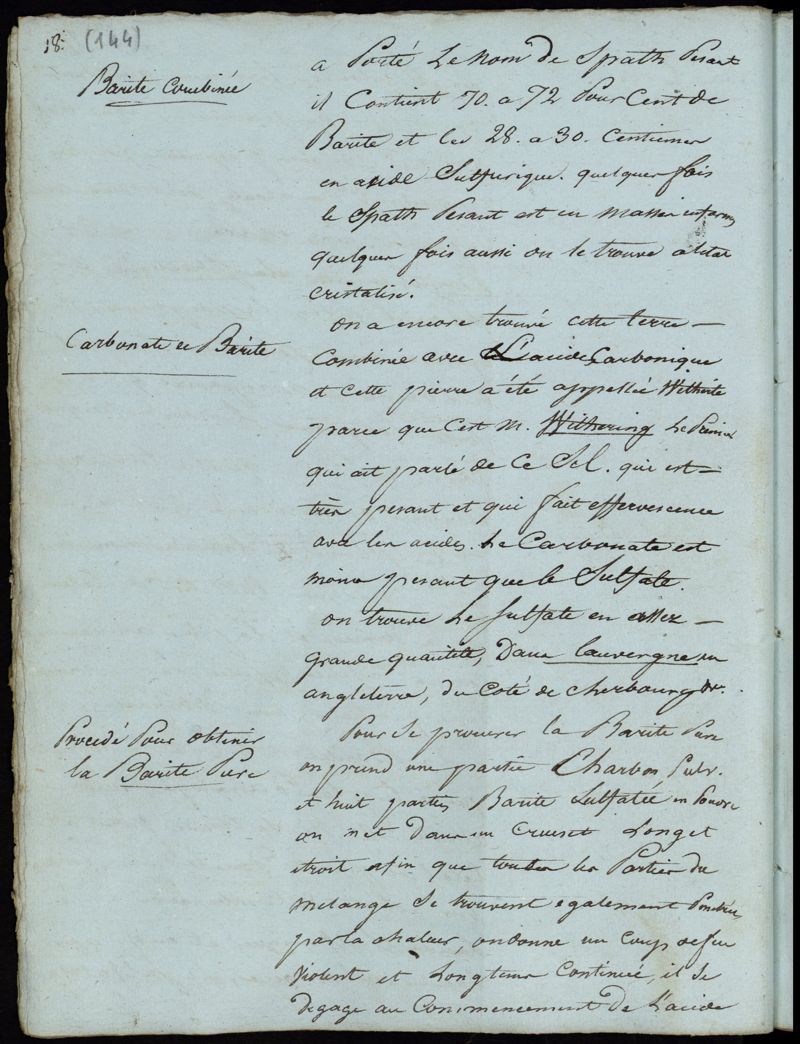 18. (144)
Barite Combinée
a Porté Le nom de Spath Pesant
il Contient 70. a 72 Pour Cent de
Barite et les 28. a 30. Centiemes
en acide Sulfurique. quelques fois
le Spath Pesant est en masses informes
quelques fois aussi on le trouve a l'etat
cristalisé.
Carbonate de Barite
on a encore trouvé cette terre
Combinée avec L'acide Carbonique
et cette pierre a été appellée Witherite
parce que C'est M. Withering Le Premier
qui ait parlé de Ce Sel. qui est
très pesant et qui fait effervescence
avec les acides. Le Carbonate est
moins pesant que le Sulfate.
on trouve Le Sulfate en assez
grande quantité, Dans Lauvergne en
angleterre, du Coté de Cherbourg &c.
Procedé Pour obtenir
la Barite Pure
Pour Se procurer la Barite Pure
on prend une partie Charbon Pulv.
et huit parties Barite Sulfatée en Poudre
on met Dans un Creuset Long et
etroit afin que toutes les Parties du
melange Se trouvent egalement Penetrées
par la chaleur, on donne un Coup de feu
violent et Longtems Continué, il Se
degage au Commencement de L'acide